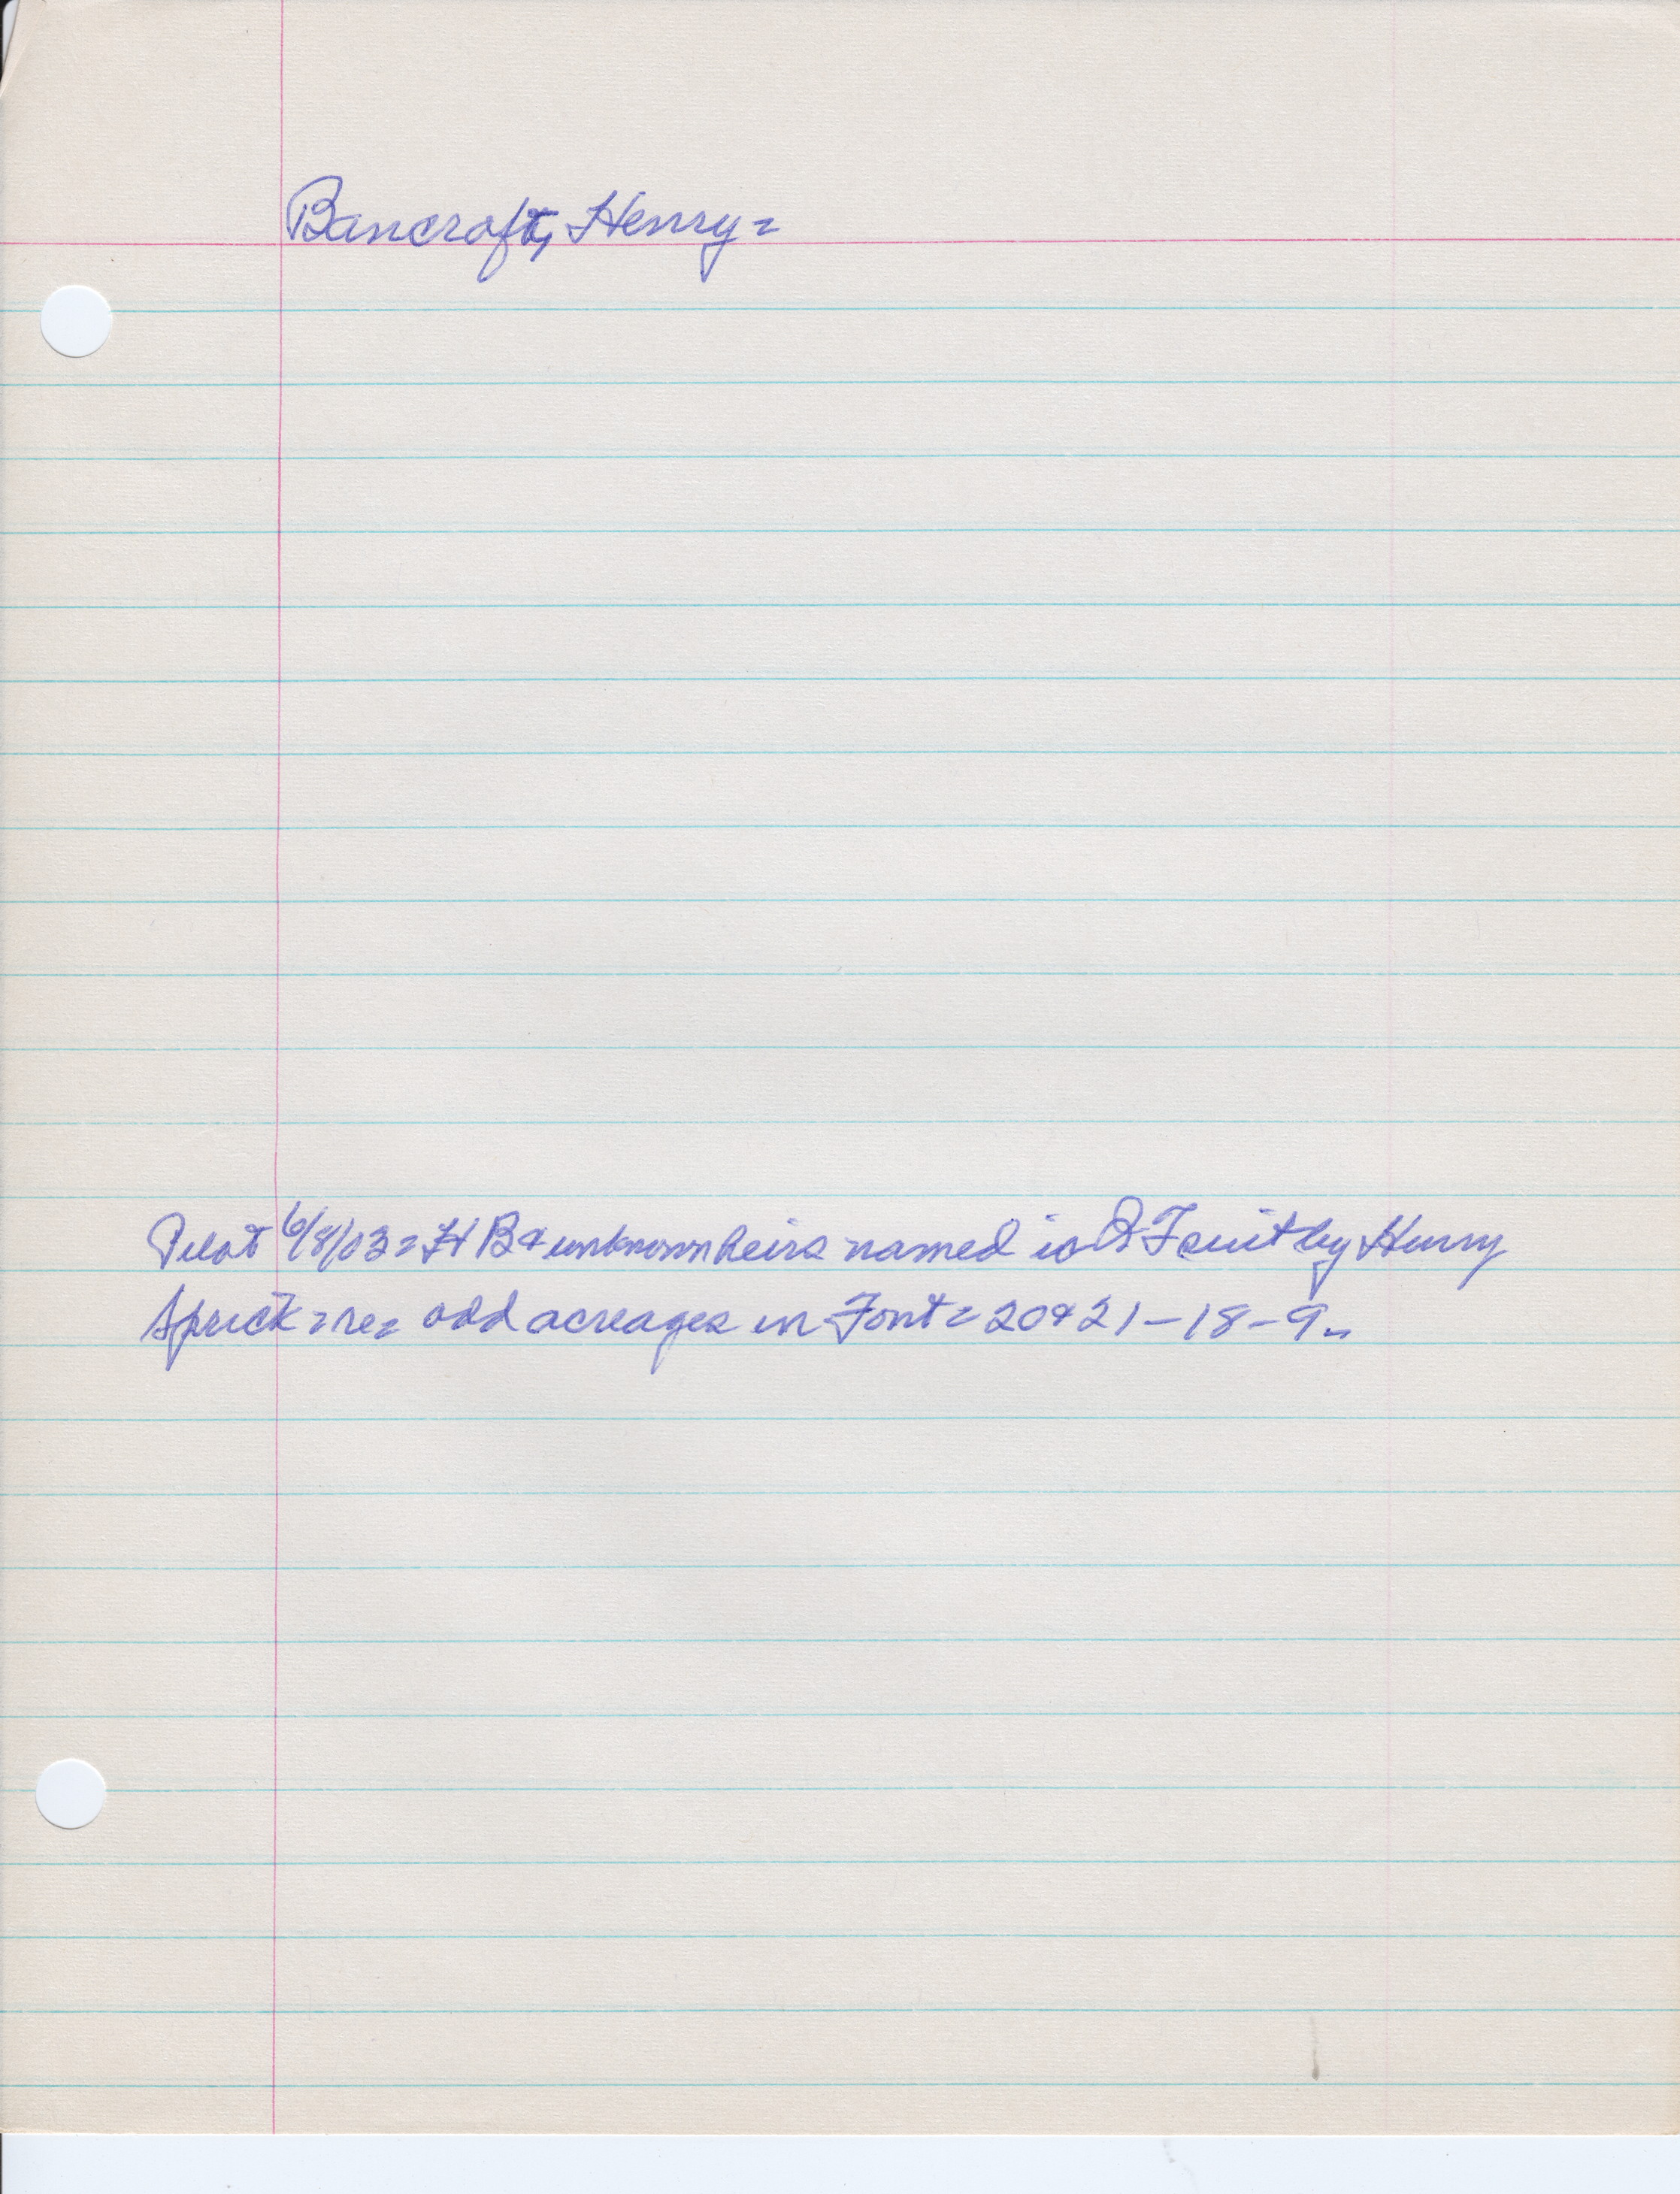 Bancroft, Henry=
Pilot 6/8/03= H B & unknown heirs named in Q T suit by Henry
Sprick= re= odd acreages in Font= 20 & 21-18-9..